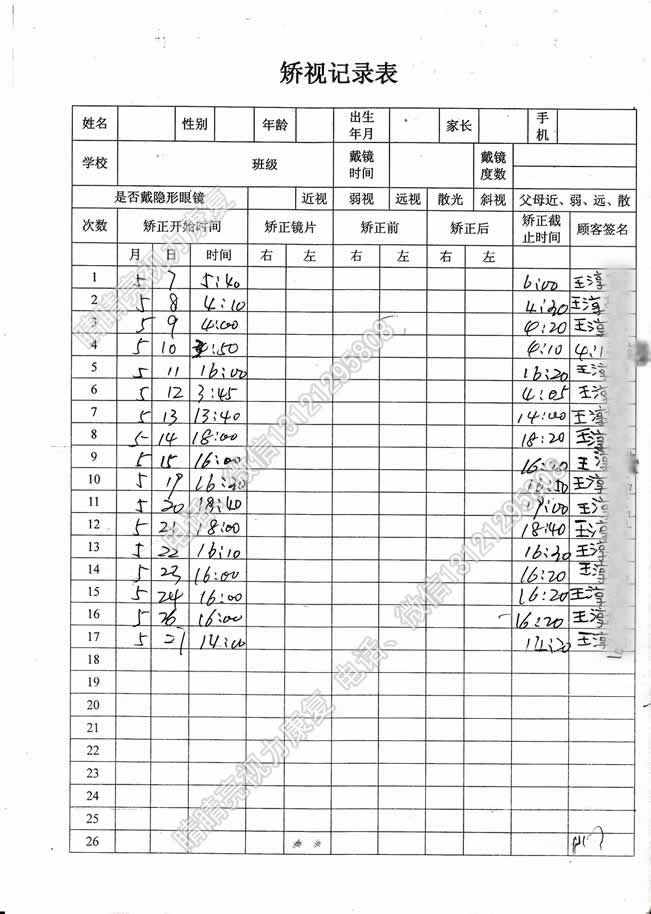 矫视记录表
姓名 性别 年龄 出生年月 家长 手机
学校 班级 戴镜时间 戴镜度数
是否戴隐形眼镜 近视 弱视 远视 散光 斜视 父母近、弱、远、散
次数 矫正开始时间 矫正镜片 矫正前 矫正后 矫正截止时间 顾客签名
月 日 时间 右 左 右 左 右 左
1 5 7 5:40 6:00 王淳
2 5 8 4:10 4:30 王淳
3 5 9 4:00 4:20 王淳
4 5 10 :50 4:10
5 5 11 16:00 16:20 王淳
6 5 12 3:45 4:05 王淳
7 5 13 13:40 14:00 王淳
8 5 14 18:00 18:20 王淳
9 5 15 16:00 16:20 王淳
10 5 19 16:30 16:50 王淳
11 5 20 18:40 王淳
12 5 21 18:00 18:40 王淳
13 5 22 16:10 16:30 王淳
14 5 23 16:00 16:20 王淳
15 5 24 16:00 16:20 王淳
16 5 26 16:00 16:20 王淳
17 5 14:00 14:20 王淳
18
19
20
21
22
23
24
25
26
睛睛亮视力康复 电话、微信13121295808